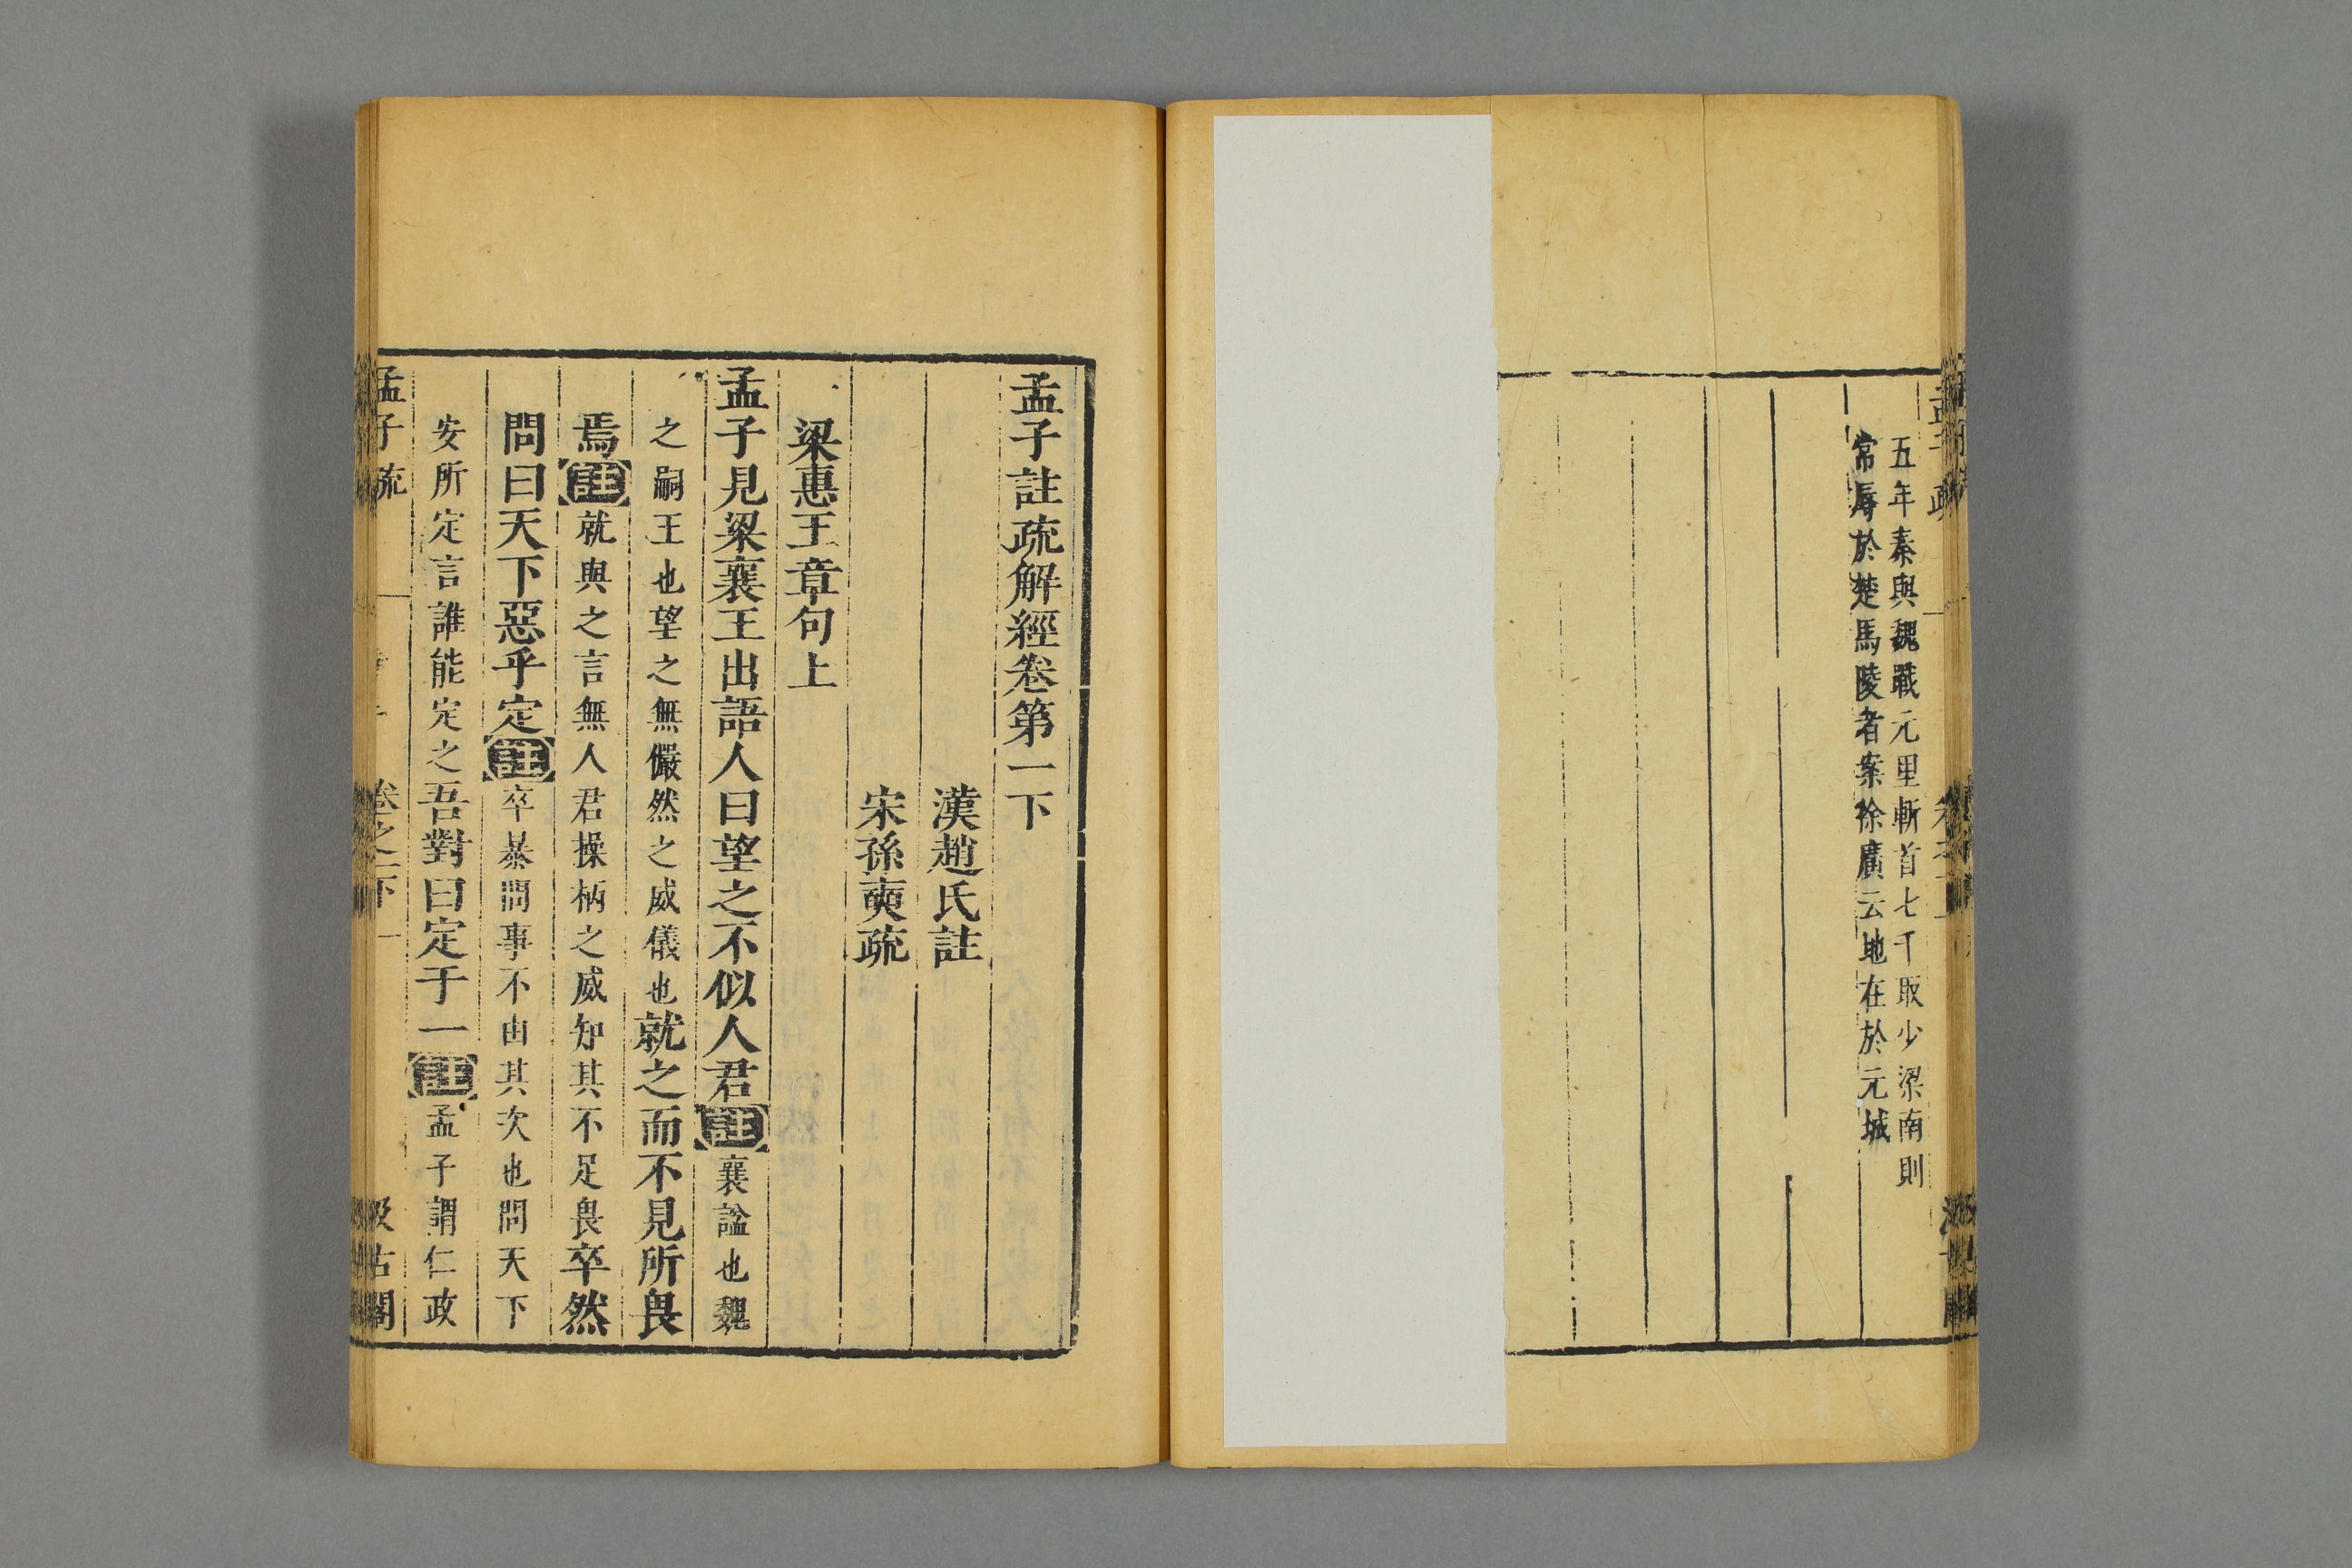 五年秦與魏戰元里斬首七千取少梁南則
常辱於楚馬陵者案徐廣云地在於元城
孟子註疏解經卷第一下
漢趙氏註
宋孫奭疏
梁惠王章句上
孟子見梁襄王出語人曰望之不似人君註襄謚也魏
之嗣王也望之無儼然之威儀也就之而不見所畏
焉註就與之言無人君操柄之威知其不足畏卒然
問曰天下惡乎定註卒暴問事不由其次也問天下
安所定言誰能定之吾對曰定于一註孟子謂仁政
孟子疏 卷之一下 一 汲古閣